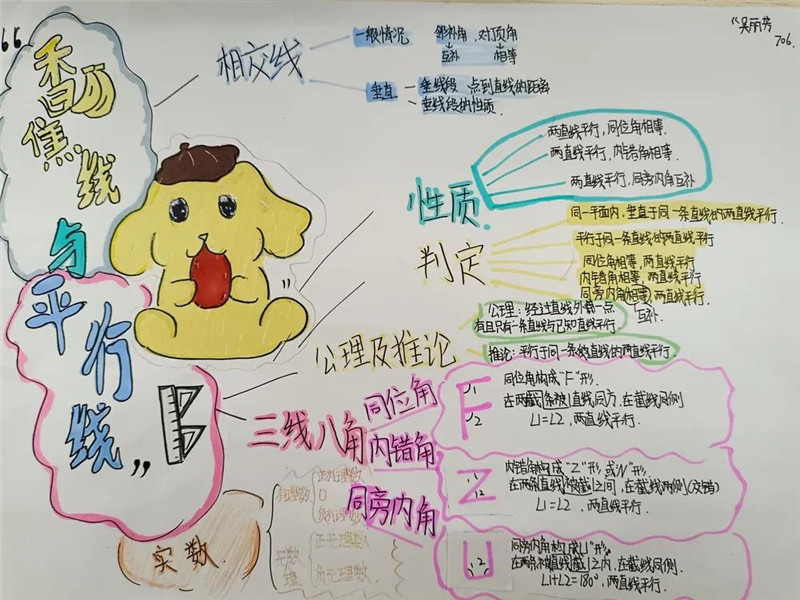 66
吴丽芳
706.
香蕉线
与
平行线
相交线
一般情况
邻补角,对顶角
互补 相等
垂直
垂线段 点到直线的距离
垂线段的性质.
性质
两直线平行,同位角相等.
两直线平行,内错角相等.
两直线平行,同旁内角互补
判定
同一平面内,垂直于同一条直线的两直线平行.
平行于同一条直线的两直线平行
同位角相等,两直线平行
内错角相等,两直线平行
同旁内角相等,两直线平行.
互补.
公理及推论
公理:经过直线外一点
有且只有一条直线与已知直线平行.
推论:平行于同一条直线的两直线平行.
三线八角
同位角
F
1
2
同位角构成"F"形.
在两截条被直线同方,在截线同侧
∠1=∠2,两直线平行.
内错角
Z
1
2
内错角构成"Z"形或"N"形
在两条直线被截之间,在截线两侧(交错)
∠1=∠2,两直线平行.
同旁内角
U
1 2
同旁内角构成"U"形.
在两条直线截之内,在截线同侧.
∠1+∠2=180°,两直线平行.
实数.
有理数
正有理数
0
负有理数
无理数
正无理数
负无理数